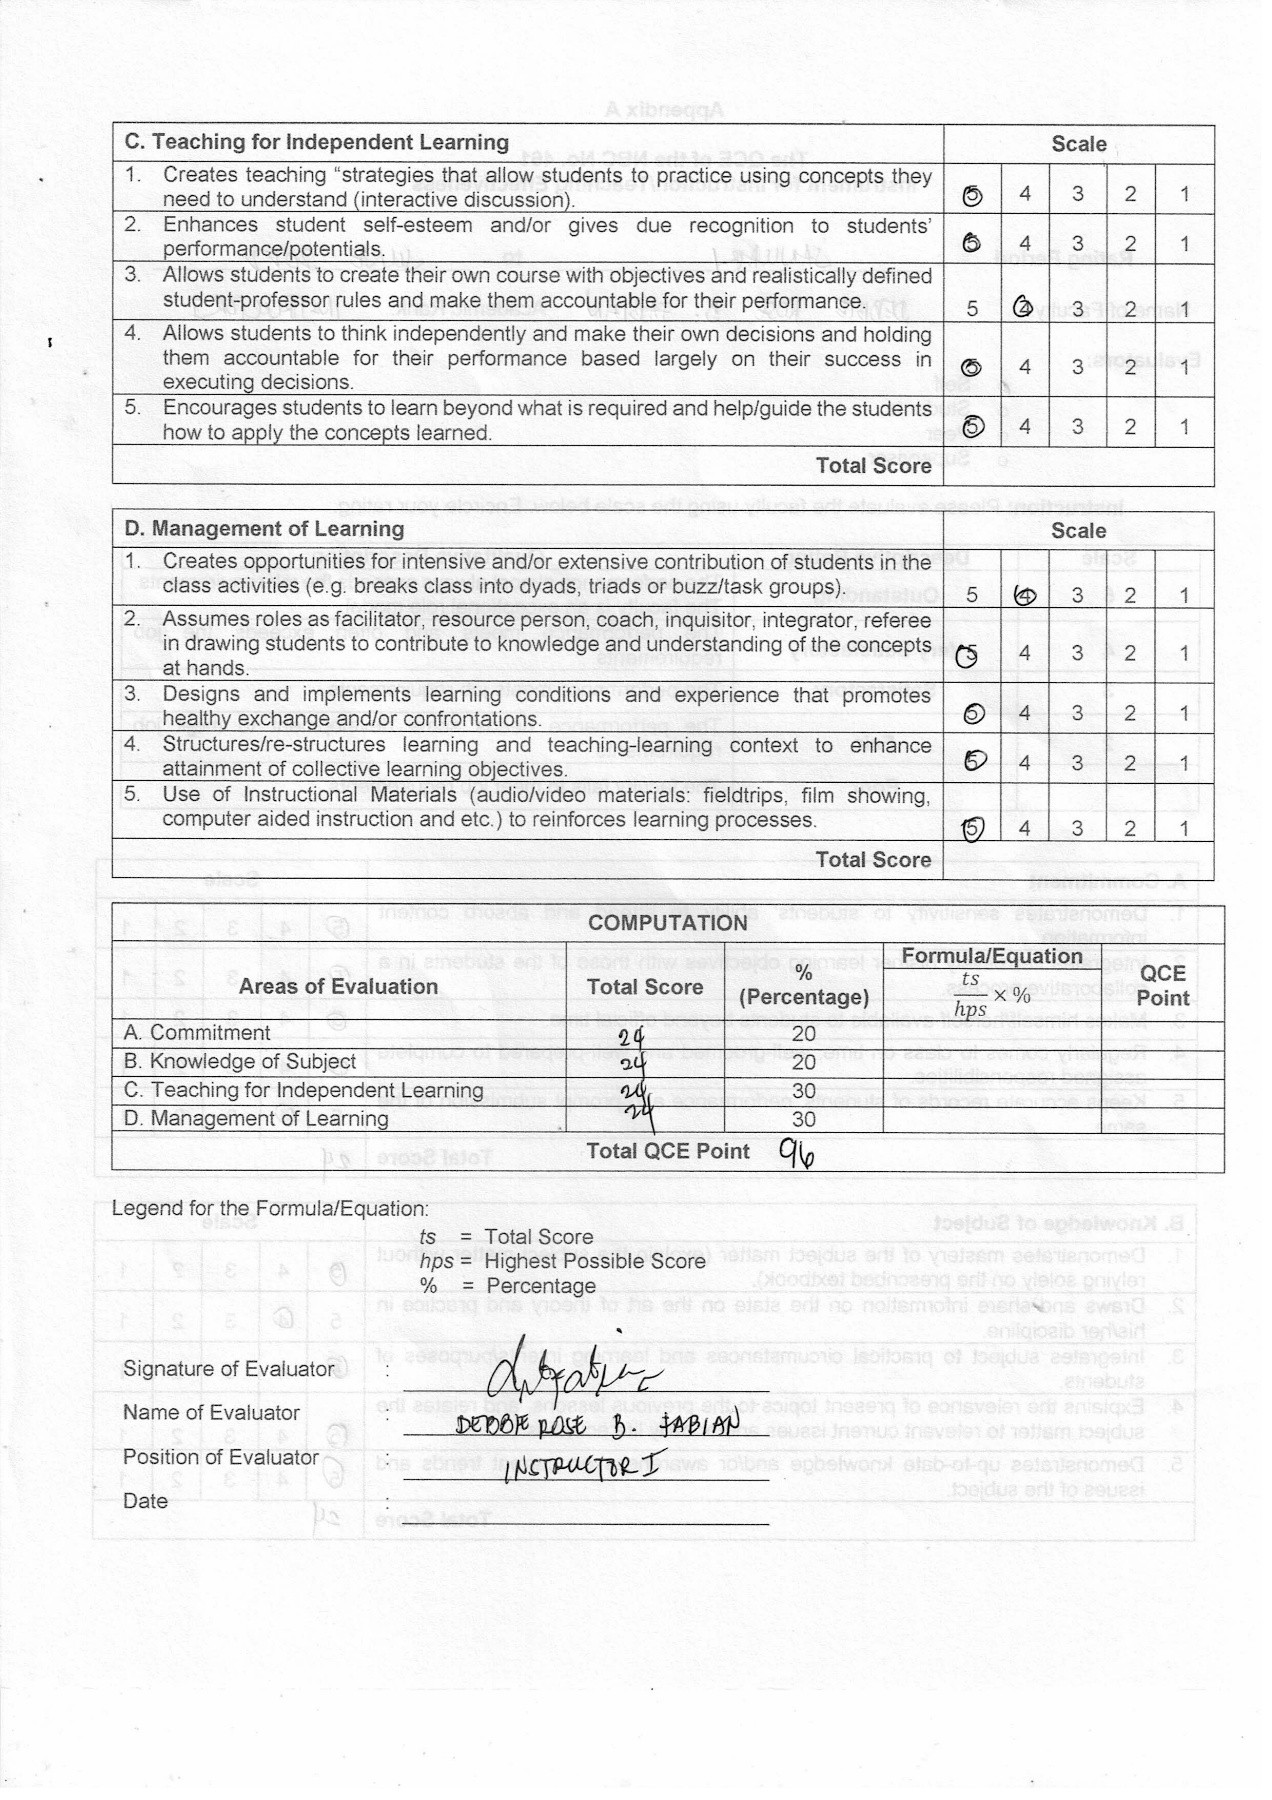 C. Teaching for Independent Learning Scale
1. Creates teaching “strategies that allow students to practice using concepts they
need to understand (interactive discussion). 5 4 3 2 1
2. Enhances student self-esteem and/or gives due recognition to students’
performance/potentials. 5 4 3 2 1
3. Allows students to create their own course with objectives and realistically defined
student-professor rules and make them accountable for their performance. 5 4 3 2 1
4. Allows students to think independently and make their own decisions and holding
them accountable for their performance based largely on their success in 5 4 3 2 1
executing decisions.
5. Encourages students to learn beyond what is required and help/guide the students
how to apply the concepts learned. 5 4 3 2 1
Total Score
D. Management of Learning Scale
1. Creates opportunities for intensive and/or extensive contribution of students in the
class activities (e.g. breaks class into dyads, triads or buzz/task groups). 5 4 3 2 1
2. Assumes roles as facilitator, resource person, coach, inquisitor, integrator, referee
in drawing students to contribute to knowledge and understanding of the concepts 5 4 3 2 1
at hands.
3. Designs and implements learning conditions and experience that promotes
healthy exchange and/or confrontations. 5 4 3 2 1
4. Structures/re-structures learning and teaching-learning context to enhance
attainment of collective learning objectives. 5 4 3 2 1
5. Use of Instructional Materials (audio/video materials: fieldtrips, film showing,
computer aided instruction and etc.) to reinforces learning processes. 5 4 3 2 1
Total Score
COMPUTATION
Areas of Evaluation Total Score % (Percentage) Formula/Equation ts/hps × % QCE Point
A. Commitment 24 20
B. Knowledge of Subject 24 20
C. Teaching for Independent Learning 24 30
D. Management of Learning 24 30
Total QCE Point 96
Legend for the Formula/Equation:
ts = Total Score
hps = Highest Possible Score
% = Percentage
Signature of Evaluator :
Name of Evaluator : DEBBIE ROSE B. FABIAN
Position of Evaluator : INSTRUCTOR I
Date :